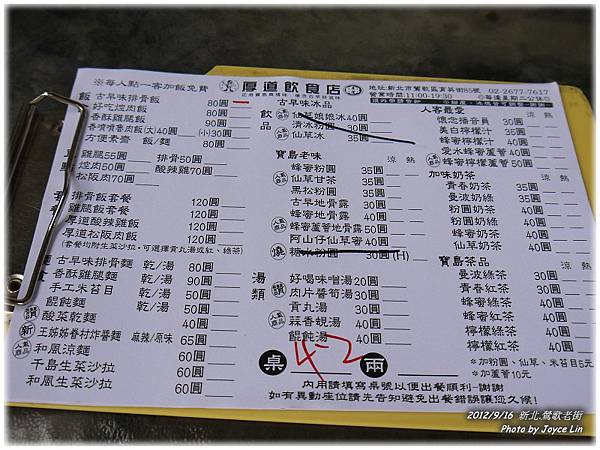 ※每人點一客加飯免費
厚道飲食店
地址:新北市鶯歌區育英街85號 02-2677-7617
營業時間:11:00-19:30
飯
古早味排骨飯 80圓
好吃焢肉飯 80圓
香酥雞腿飯 90圓
香噴噴魯肉飯(大)40圓 (小)30圓
方便素齋 飯/麵 80圓
雞腿55圓 排骨50圓
焢肉50圓 酸辣雞70圓
松阪肉70圓
排骨飯套餐 120圓
雞腿飯套餐 120圓
厚道酸辣雞飯 120圓
厚道松阪肉飯 120圓
(套餐均附生菜沙拉,可選擇貢丸湯或紅、綠茶)
古早味排骨麵 乾/湯 80圓
香酥雞腿麵 乾/湯 90圓
手工米苔目 乾/湯 50圓
餛飩麵 乾/湯 50圓
讚 酸菜乾麵 40圓
新 王姊姊眷村炸醬麵 麻辣/原味 65圓
和風涼麵 60圓
千島生菜沙拉 60圓
和風生菜沙拉 60圓
飲品
古早味冰品
仙草娘娘冰40圓
清冰粉圓 35圓
仙草冰 35圓
寶島老味 涼 熱
蜂蜜粉圓 35圓
仙草甘茶 35圓
黑松粉圓 35圓
古早地骨露 30圓
蜂蜜地骨露 40圓
蜂蜜地骨蘆薈50圓
阿山仔仙草蜜40圓
糖水粉圓 30圓(H)
湯類
好喝味噌湯20圓
讚 肉片醬筍湯30圓
貢丸湯 30圓
蒜香蜆湯 40圓
餛飩湯 40圓
人客最愛 涼 熱
懷念播音員 30圓
美白檸檬汁 35圓
蜂蜜檸檬汁 40圓
愛水蜂蜜蘆薈40圓
蜂蜜檸檬蘆薈50圓
加味奶茶 涼 熱
青春奶茶 35圓
曼波奶綠 35圓
粉圓奶茶 40圓
粉圓奶綠 40圓
蜂蜜奶茶 40圓
仙草奶茶 40圓
寶島茶品 涼 熱
曼波綠茶 30圓
青春紅茶 30圓
蜂蜜綠茶 40圓
蜂蜜紅茶 40圓
檸檬綠茶 40圓
檸檬紅茶 40圓
*加粉圓、仙草、米苔目5元
*加蘆薈10元
桌 42 兩
內用請填寫桌號以便出餐順利-謝謝
如有異動座位請先告知避免出餐錯誤讓您久候!
2012/9/16 新北.鶯歌老街
Photo by Joyce Lin